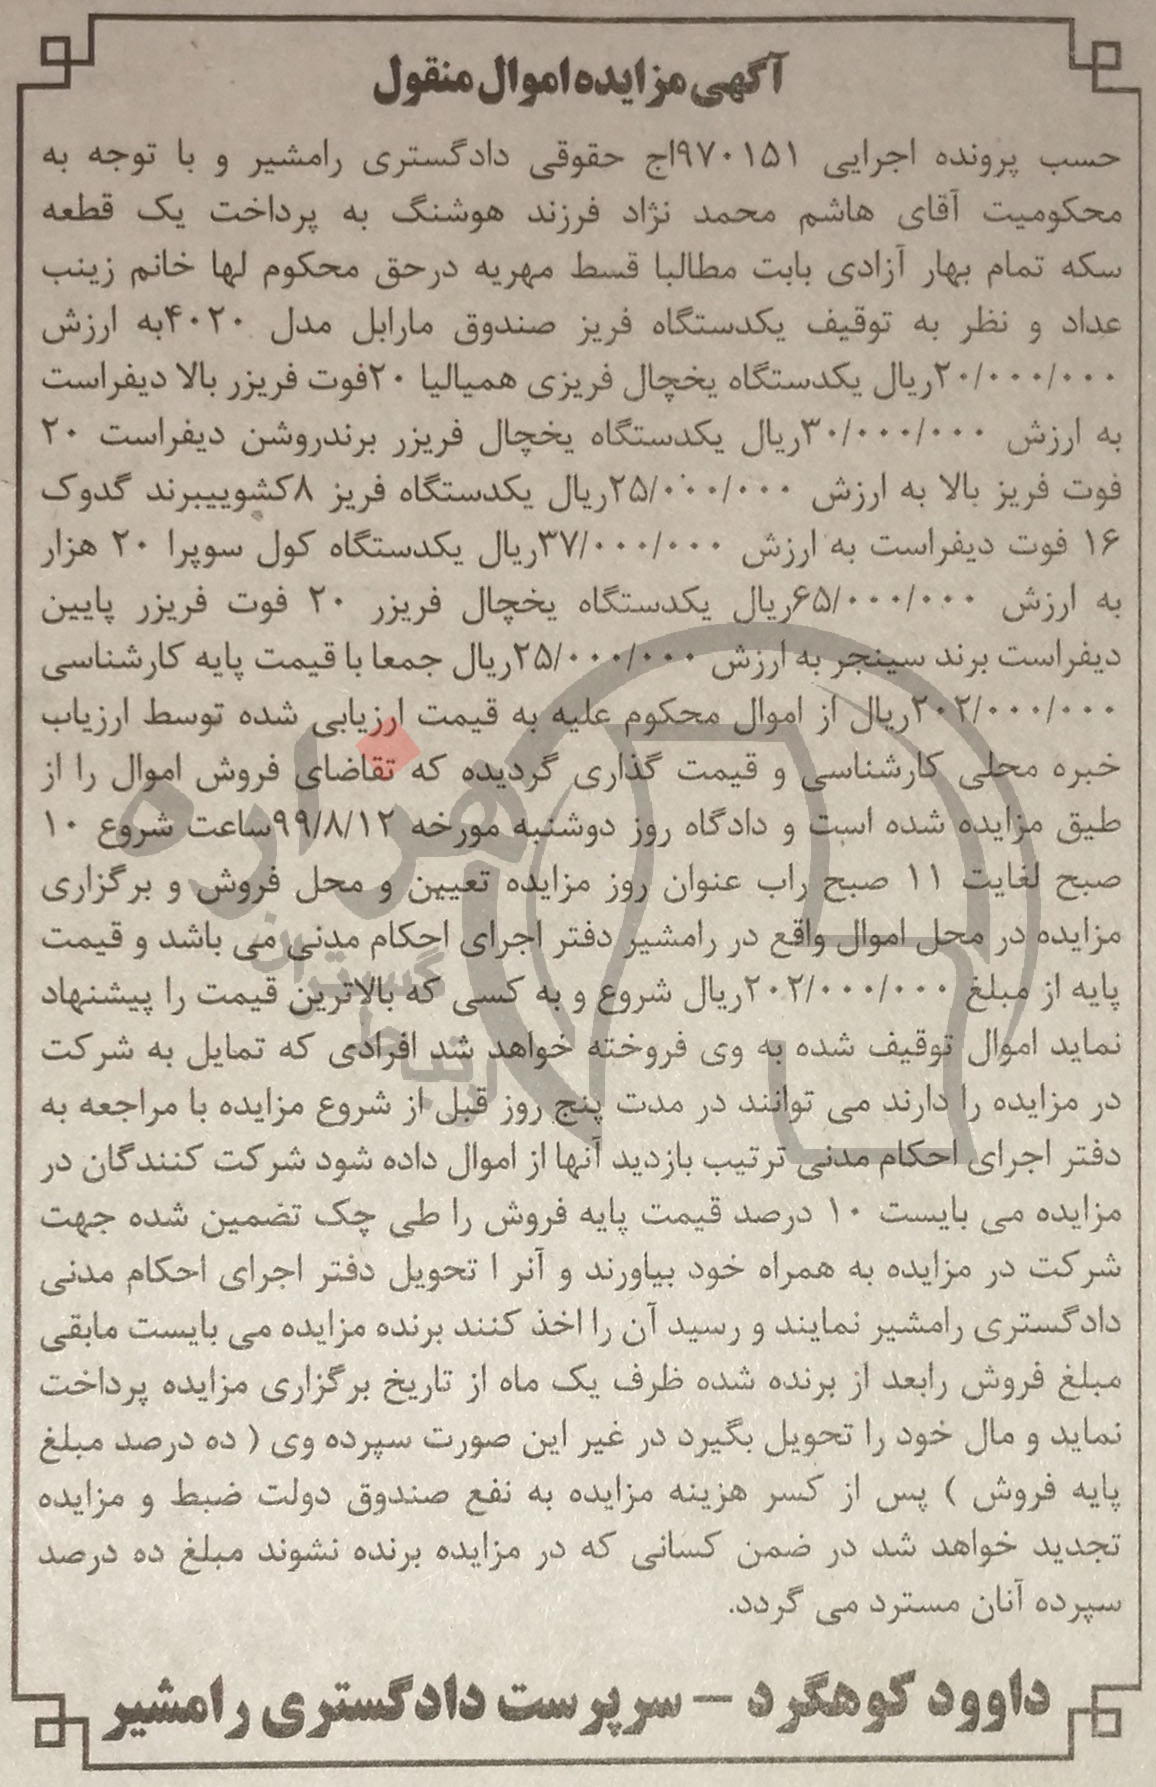 آگهی مزایده اموال منقول
حسب پرونده اجرایی ۹۷۰۱۵۱اج حقوقی دادگستری رامشیر و با توجه به
محکومیت آقای هاشم محمد نژاد فرزند هوشنگ به پرداخت یک قطعه
سکه تمام بهار آزادی بابت مطالبا قسط مهریه درحق محکوم لها خانم زینب
عداد و نظر به توقیف یکدستگاه فریز صندوق مارابل مدل ۴۰۲۰به ارزش
۲۰/۰۰۰/۰۰۰ریال یکدستگاه یخچال فریزی همیالیا ۲۰فوت فریزر بالا دیفراست
به ارزش ۳۰/۰۰۰/۰۰۰ریال یکدستگاه یخچال فریزر برندروشن دیفراست ۲۰
فوت فریز بالا به ارزش ۲۵/۰۰۰/۰۰۰ریال یکدستگاه فریز ۸کشوییبرند گدوک
۱۶ فوت دیفراست به ارزش ۳۷/۰۰۰/۰۰۰ریال یکدستگاه کول سوپرا ۲۰ هزار
به ارزش ۶۵/۰۰۰/۰۰۰ریال یکدستگاه یخچال فریزر ۲۰ فوت فریزر پایین
دیفراست برند سینجر به ارزش ۲۵/۰۰۰/۰۰۰ریال جمعا با قیمت پایه کارشناسی
۲۰۲/۰۰۰/۰۰۰ریال از اموال محکوم علیه به قیمت ارزیابی شده توسط ارزیاب
خبره محلی کارشناسی و قیمت گذاری گردیده که تقاضای فروش اموال را از
طیق مزایده شده است و دادگاه روز دوشنبه مورخه ۹۹/۸/۱۲ساعت شروع ۱۰
صبح لغایت ۱۱ صبح راب عنوان روز مزایده تعیین و محل فروش و برگزاری
مزایده در محل اموال واقع در رامشیر دفتر اجرای احکام مدنی می باشد و قیمت
پایه از مبلغ ۲۰۲/۰۰۰/۰۰۰ریال شروع و به کسی که بالاترین قیمت را پیشنهاد
نماید اموال توقیف شده به وی فروخته خواهد شد افرادی که تمایل به شرکت
در مزایده را دارند می توانند در مدت پنج روز قبل از شروع مزایده با مراجعه به
دفتر اجرای احکام مدنی ترتیب بازدید آنها از اموال داده شود شرکت کنندگان در
مزایده می بایست ۱۰ درصد قیمت پایه فروش را طی چک تضمین شده جهت
شرکت در مزایده به همراه خود بیاورند و آنر ا تحویل دفتر اجرای احکام مدنی
دادگستری رامشیر نمایند و رسید آن را اخذ کنند برنده مزایده می بایست مابقی
مبلغ فروش رابعد از برنده شده ظرف یک ماه از تاریخ برگزاری مزایده پرداخت
نماید و مال خود را تحویل بگیرد در غیر این صورت سپرده وی ( ده درصد مبلغ
پایه فروش ) پس از کسر هزینه مزایده به نفع صندوق دولت ضبط و مزایده
تجدید خواهد شد در ضمن کسانی که در مزایده برنده نشوند مبلغ ده درصد
سپرده آنان مسترد می گردد.
داوود کوهگرد – سرپرست دادگستری رامشیر
هزاره